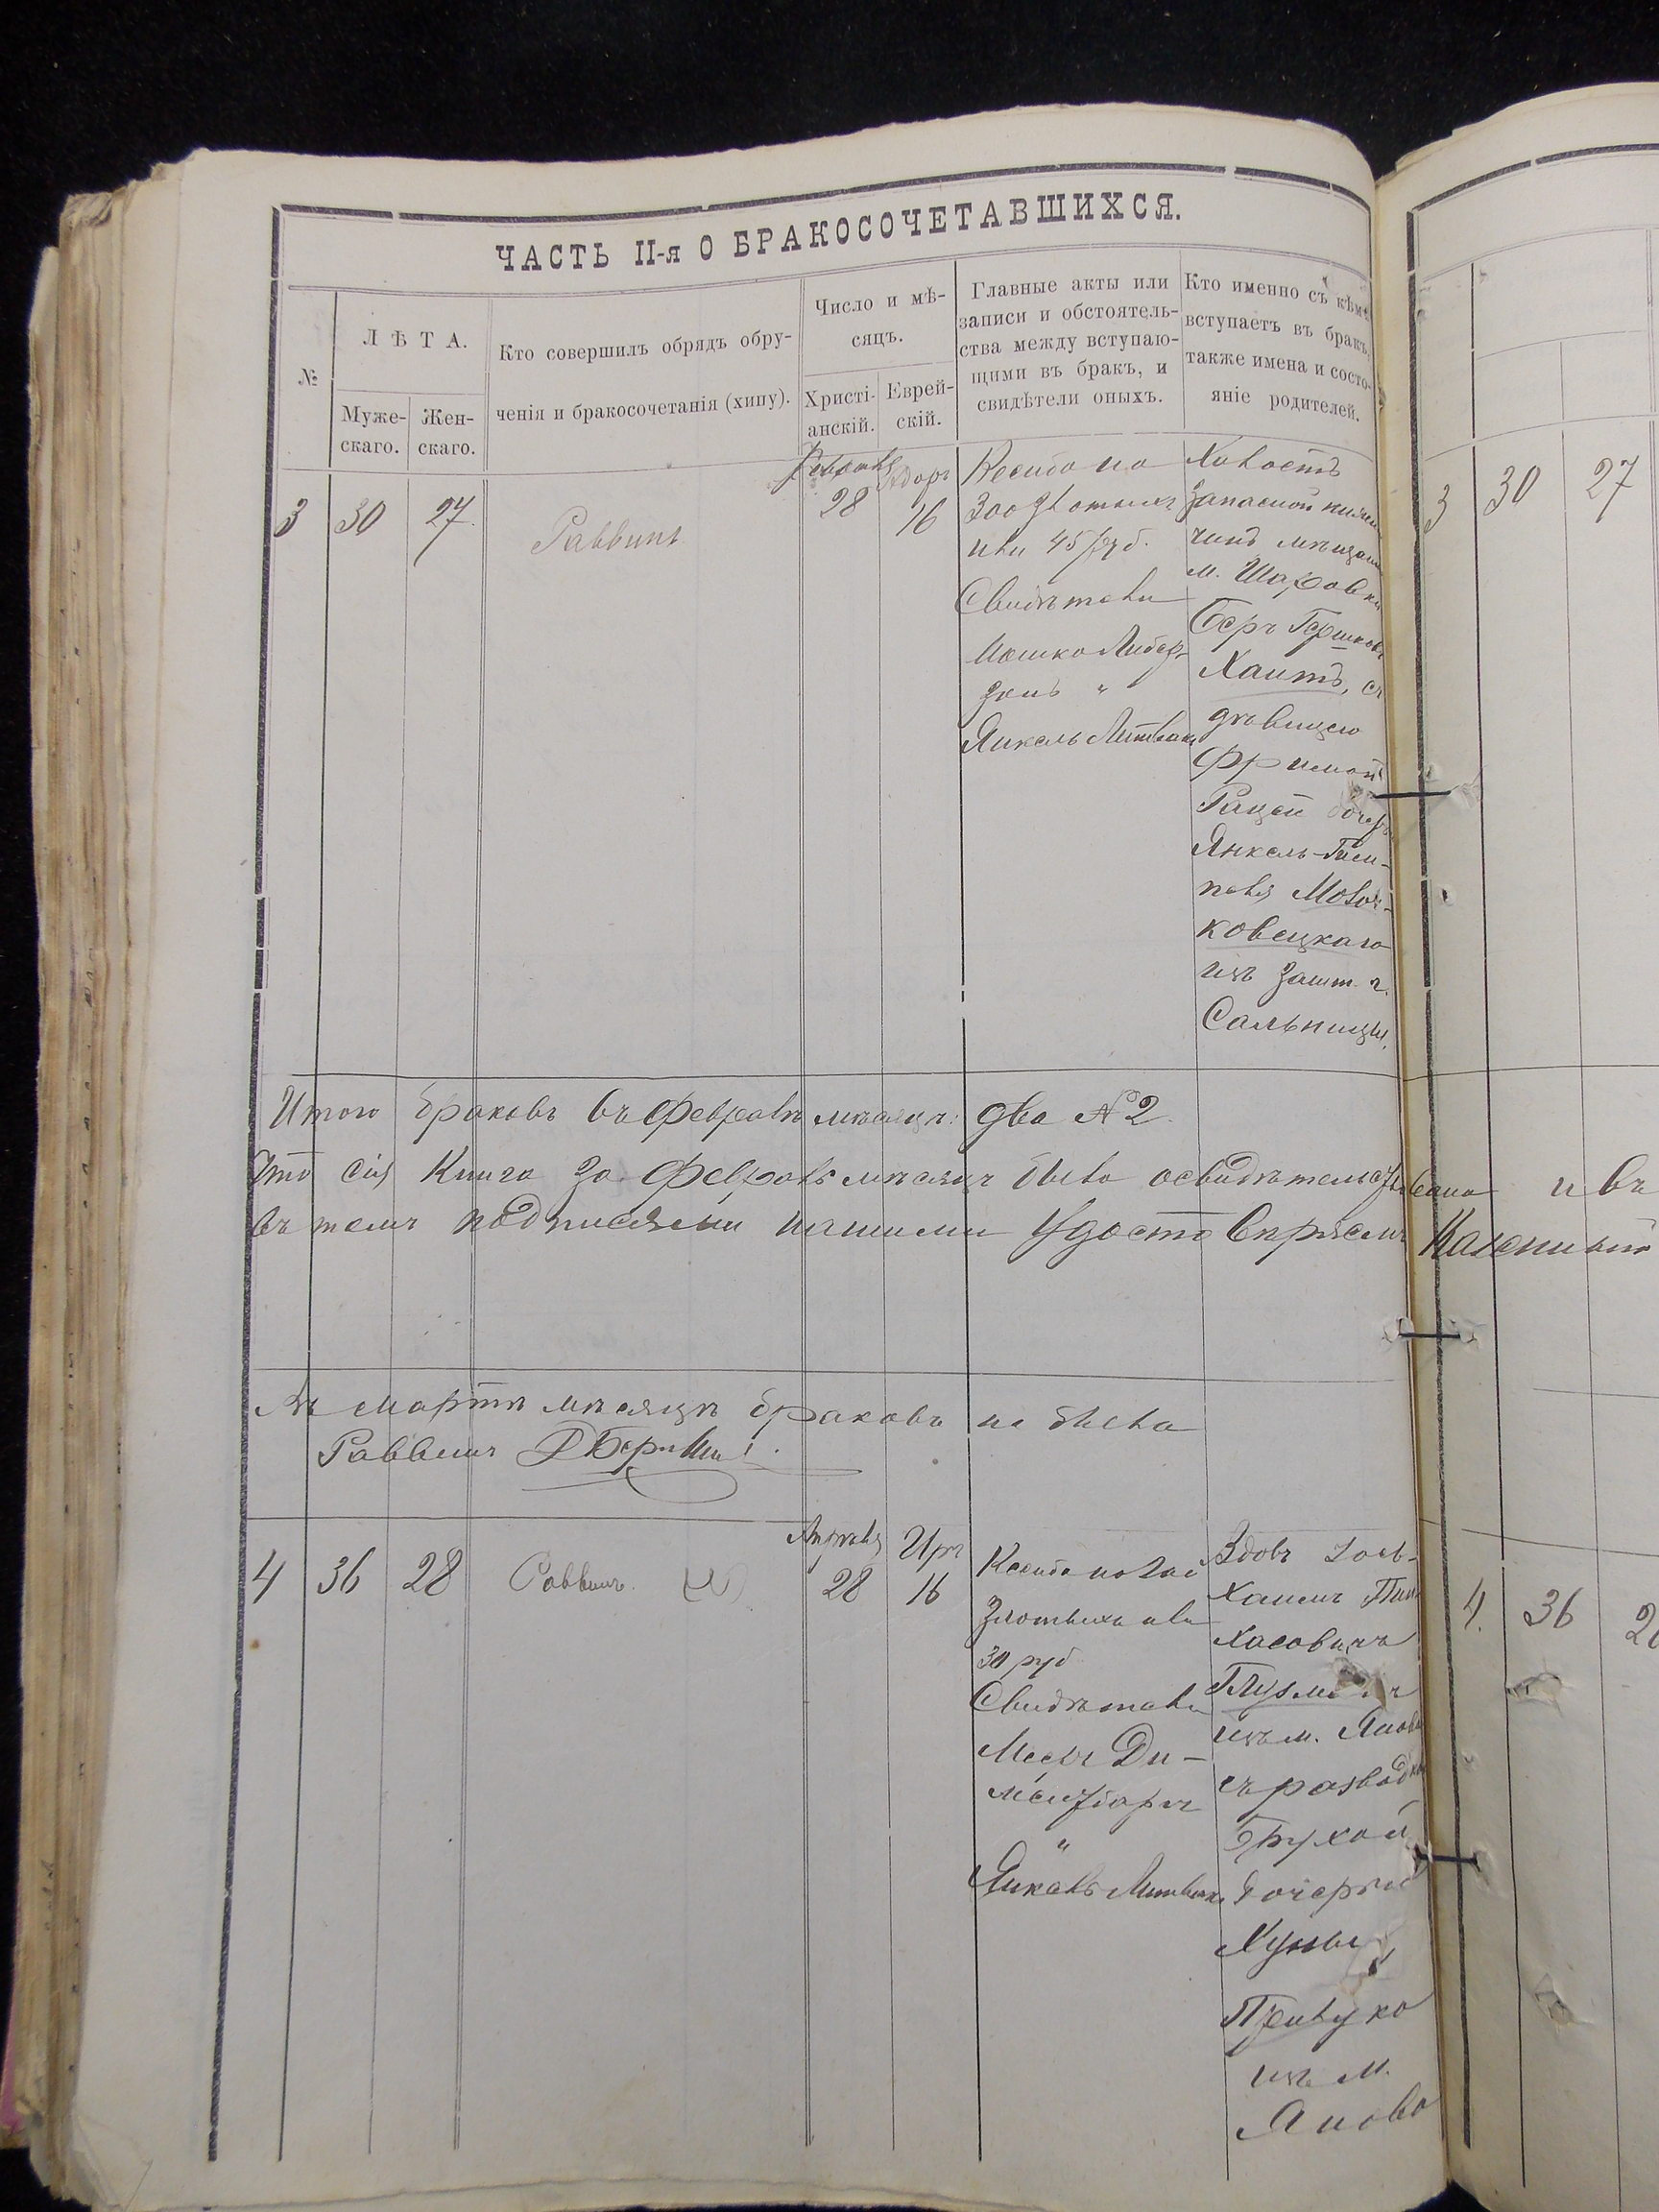 ЧАСТЬ II-я О БРАКОСОЧЕТАВШИХСЯ.
№
ЛѢТА.
Муже-
скаго.
Жен-
скаго.
Кто совершилъ обрядъ обру-
ченія и бракосочетанія (хипу).
Число и мѣ-
сяцъ.
Христі-
анскій.
Еврей-
скій.
Главные акты или
записи и обстоятель-
ства между вступаю-
щими въ бракъ, и
свидѣтели оныхъ.
Кто именно съ кѣмъ
вступаетъ въ бракъ,
также имена и состо-
яніе родителей.
3
30
27.
Раввинъ
Февраля
28
Адоръ
16
на
300 злотыхъ
или 45 руб.
Свидѣтели
Иошко Либер-
зонъ "
Янкель Литвакъ
Холостъ
запасной нижній
чинъ мѣщан
м. Шаровки
Беръ Гершков
Хаитъ, съ
дѣвицею
Фримой
дочер
Янкель-
Молоч-
ковецкаго
изъ зашт. г.
Сальницы.
3
30
27
Итого браковъ въ Февралѣ мѣсяцѣ: два № 2.
Что сія Книга за Февраль мѣсяцъ была освидѣтельствована и въ
въ томъ подписями нашими удостовѣряемъ Казенный
Въ мартѣ мѣсяцѣ браковъ не было
Раввинъ
4
36
28
Раввинъ.
Апрѣля
28
Иръ
16
на
злотыхъ или
30 руб
Свидѣтели
Мееръ Ди-
"
Янкель Литвакъ
Вдовъ Іось-
Хаимъ Пин
хасовичъ
Глузманъ
изъ м. Янова
съ разводкой
Брухой
дочерью
Хуны
изъ м.
Янова
4.
36